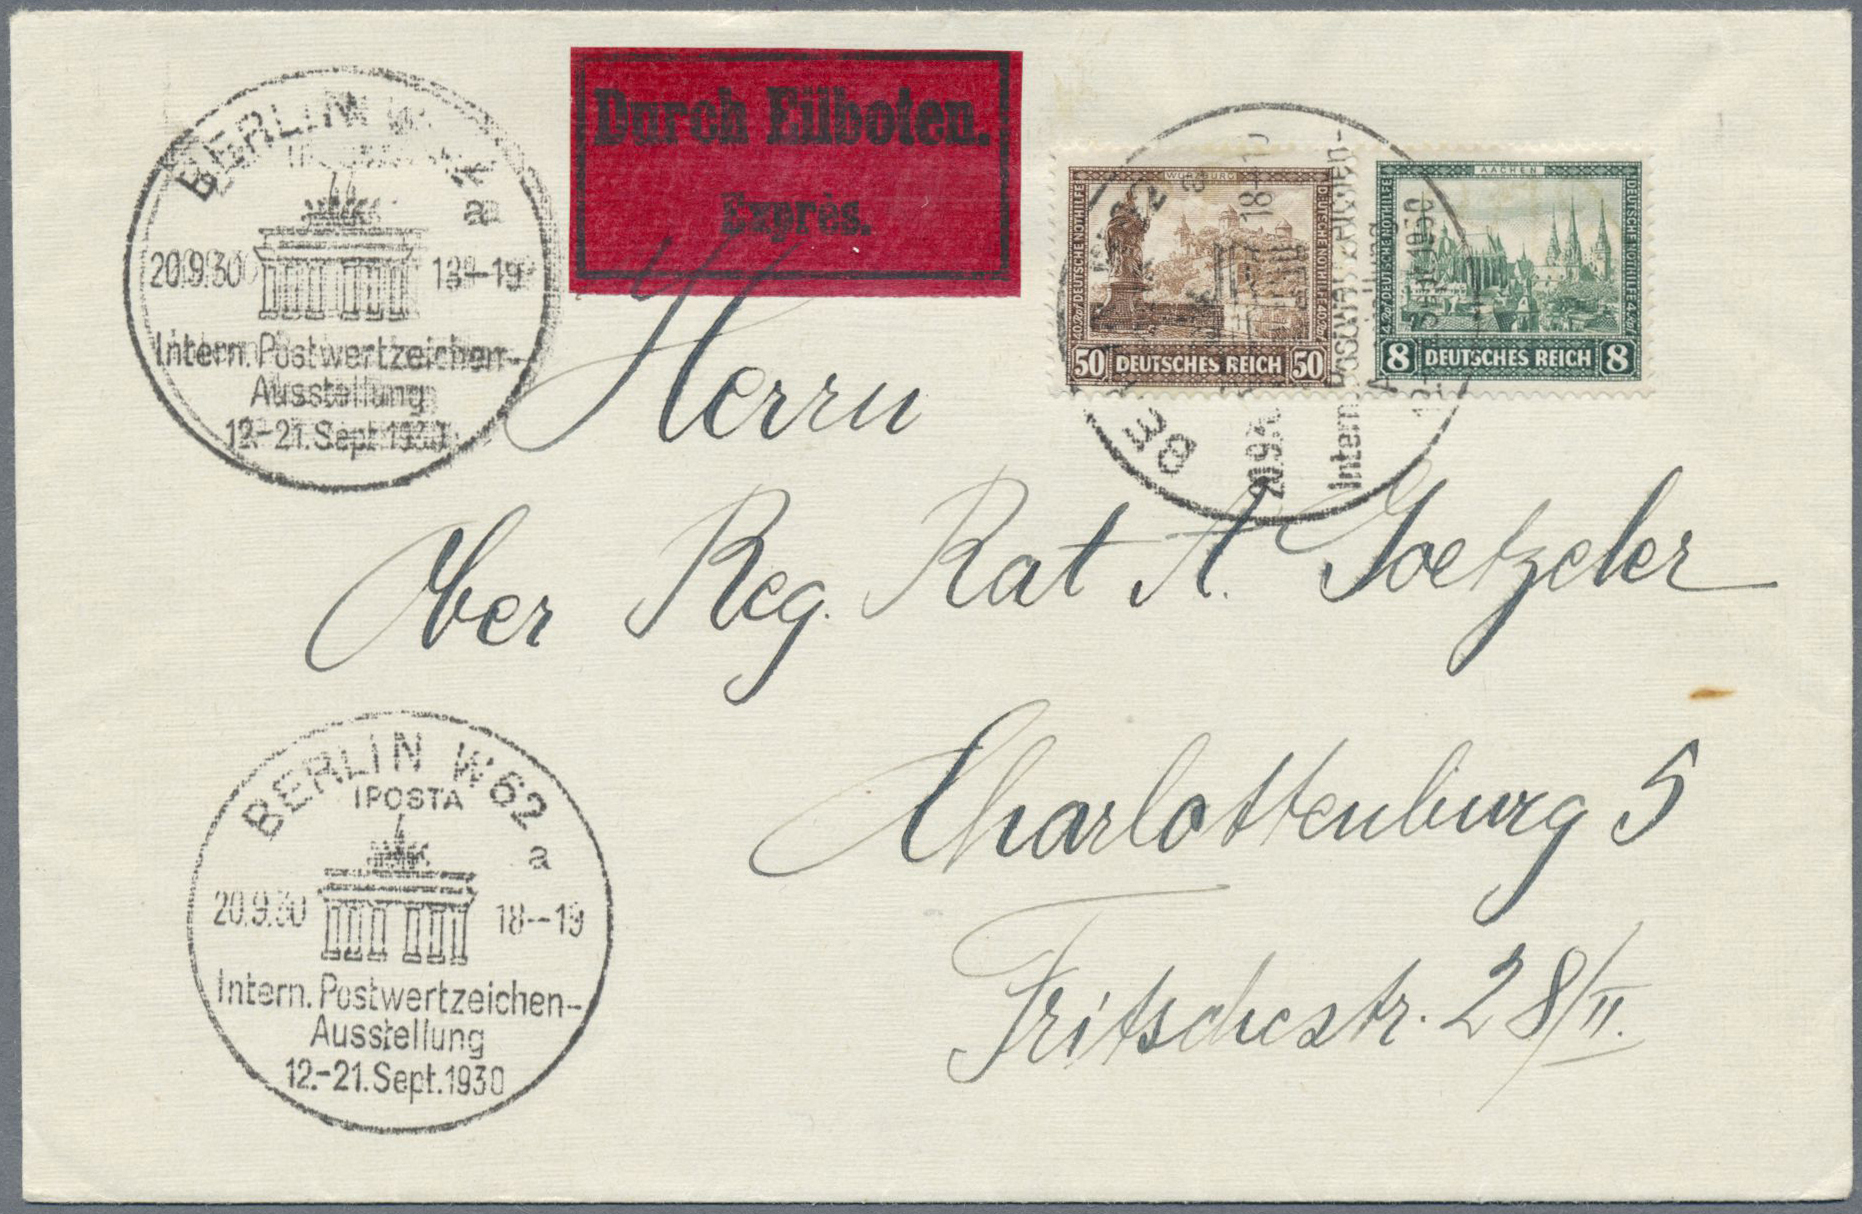 BERLIN W
a
20.9.30 18-19
Intern. Postwertzeichen-
Ausstellung
12.-21. Sept. 1930
Durch Eilboten.
Exprès.
WÜRZBURG
DEUTSCHE NOTHILFE
DEUTSCHE NOTHILFE
50 DEUTSCHES REICH 50
AACHEN
DEUTSCHE NOTHILFE
DEUTSCHE NOTHILFE
8 DEUTSCHES REICH 8
18-19
20.9.
Intern. Postwertzeichen-
Herrn
Ober Reg. Rat A. Goetzeler
Charlottenburg 5
Fritschestr. 28/II.
BERLIN W62
IPOSTA
a
20.9.30 18-19
Intern. Postwertzeichen-
Ausstellung
12.-21. Sept. 1930